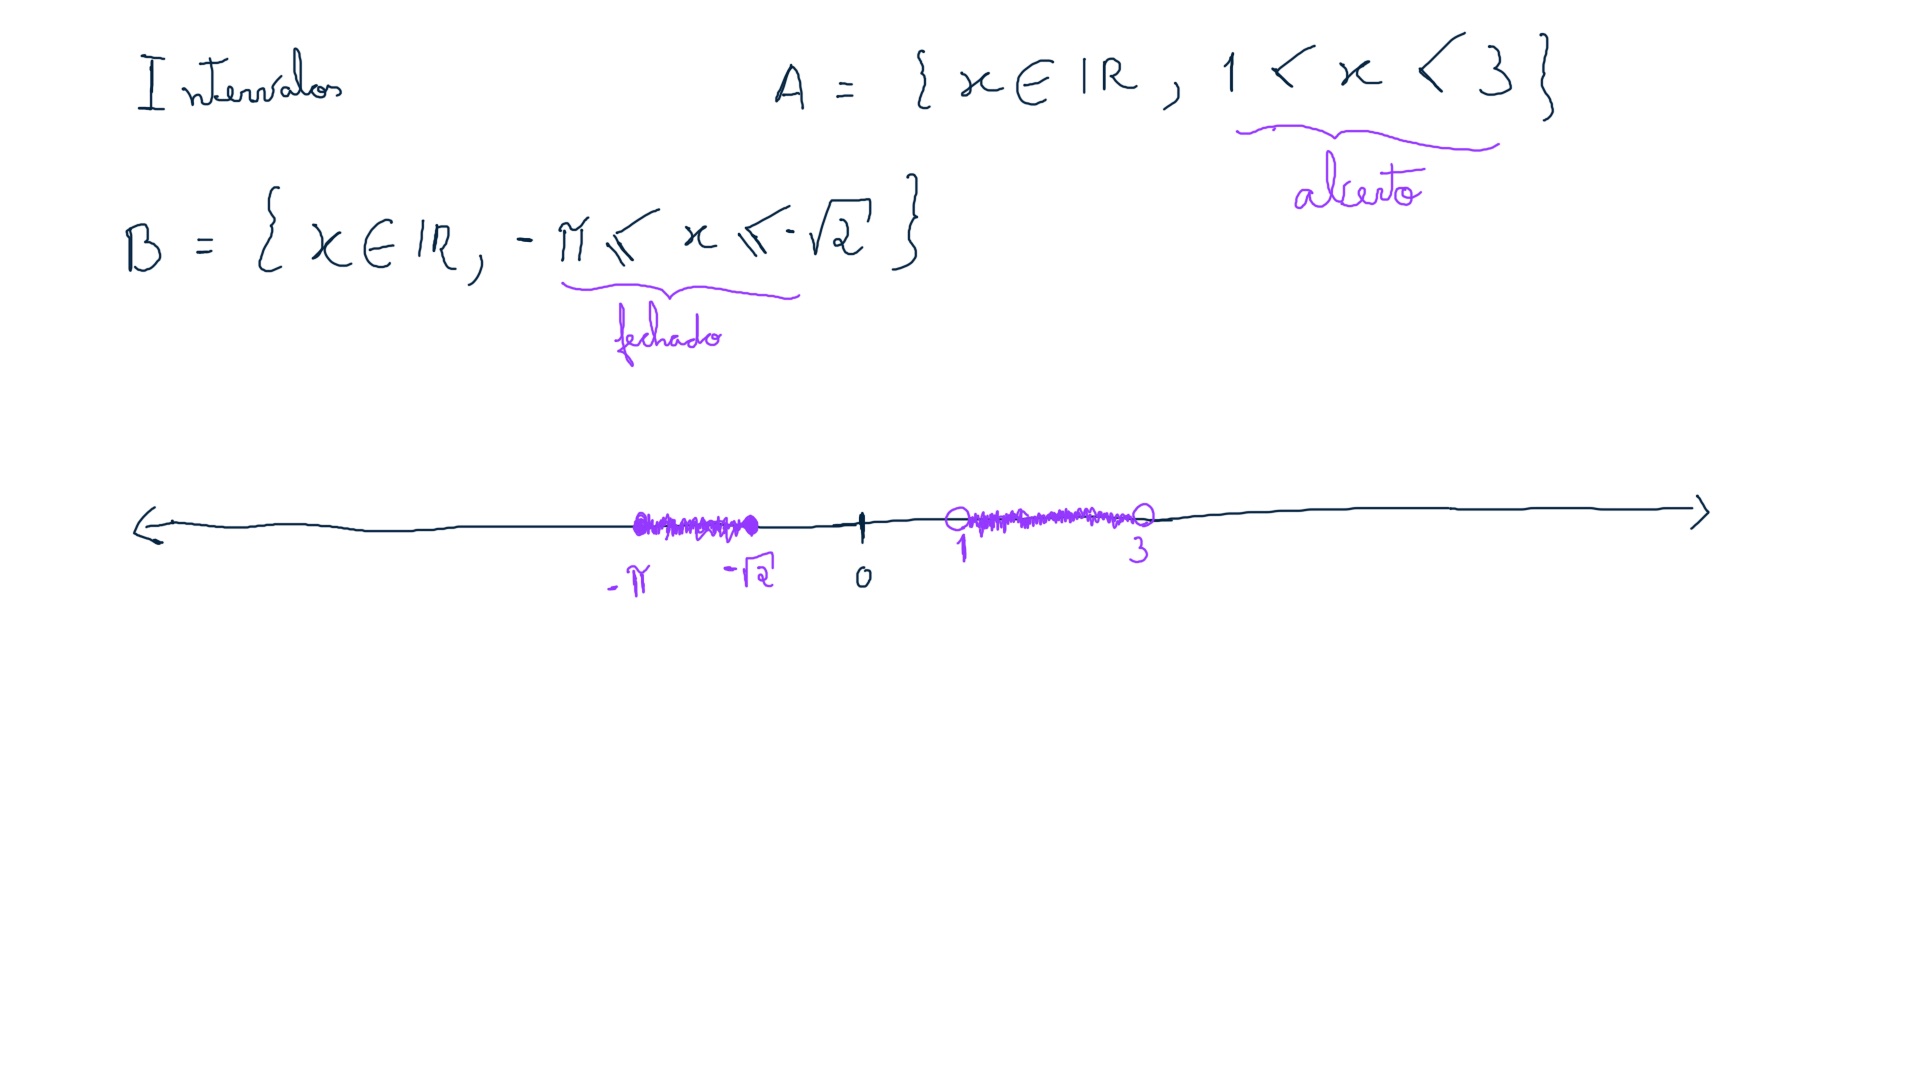 Intervalos
A = { x ∈ IR , 1 < x < 3 }
aberto
B = { x ∈ IR, - π ⩽ x ⩽ -√2 }
fechado
-π -√2 0 1 3